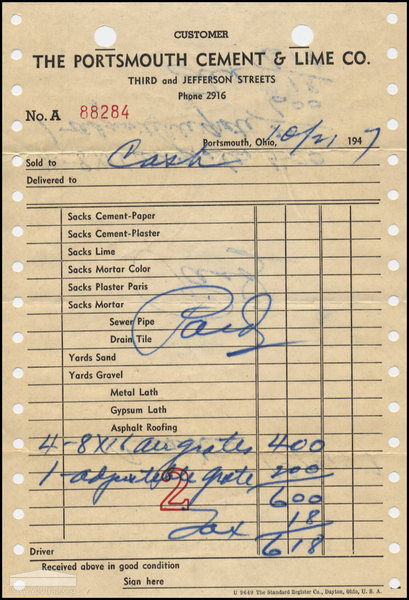 CUSTOMER
THE PORTSMOUTH CEMENT & LIME CO.
THIRD and JEFFERSON STREETS
Phone 2916
No. A 88284
Portsmouth, Ohio, 10/21 1947
Sold to Cash
Delivered to
Sacks Cement-Paper
Sacks Cement-Plaster
Sacks Lime
Sacks Mortar Color
Sacks Plaster Paris
Sacks Mortar
Sewer Pipe
Paid
Drain Tile
Yards Sand
Yards Gravel
Metal Lath
Gypsum Lath
Asphalt Roofing
4-8X16 air grates 400
1-adjustable grate 200
2 600
Tax 18
Driver 618
Received above in good condition
Sign here
U 9649 The Standard Register Co., Dayton, Ohio, U. S. A.